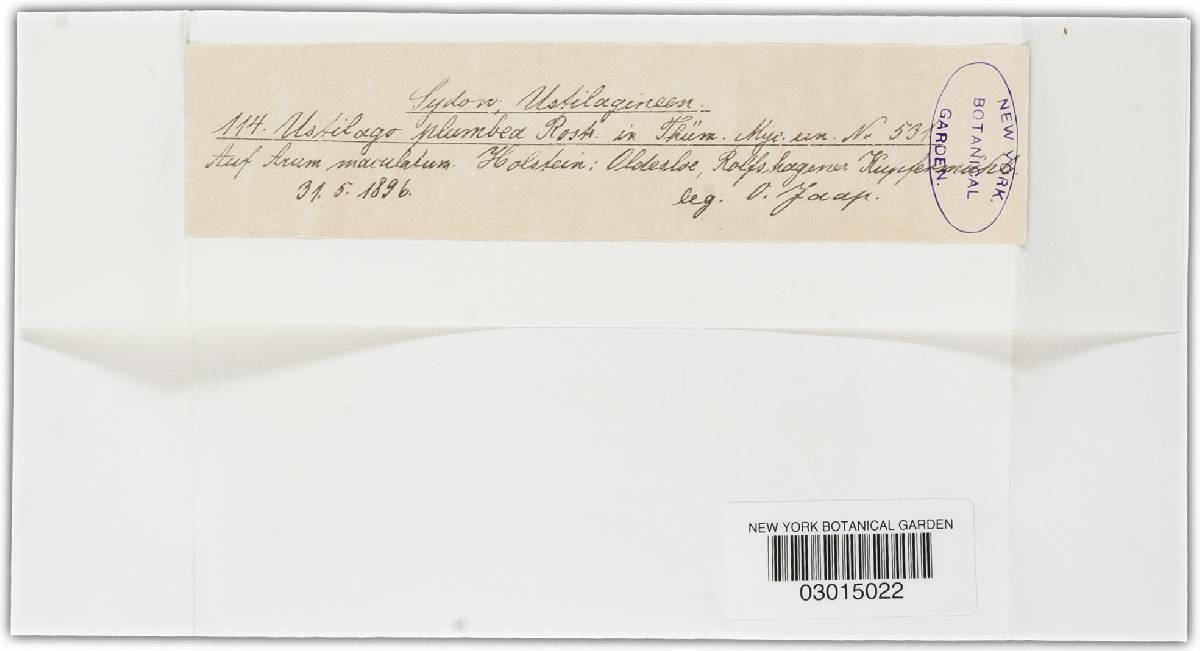 Sydow, Ustilagineen.
114. Ustilago plumbea Rostr. in Thüm. Myc. un. No 531
Auf Arum maculatum. Holstein: Oldesloe, Rolfshagener Kupfermühle
31. 5. 1896. leg. O. Jaap.
NEW YORK
BOTANICAL
GARDEN.
NEW YORK BOTANICAL GARDEN
03015022